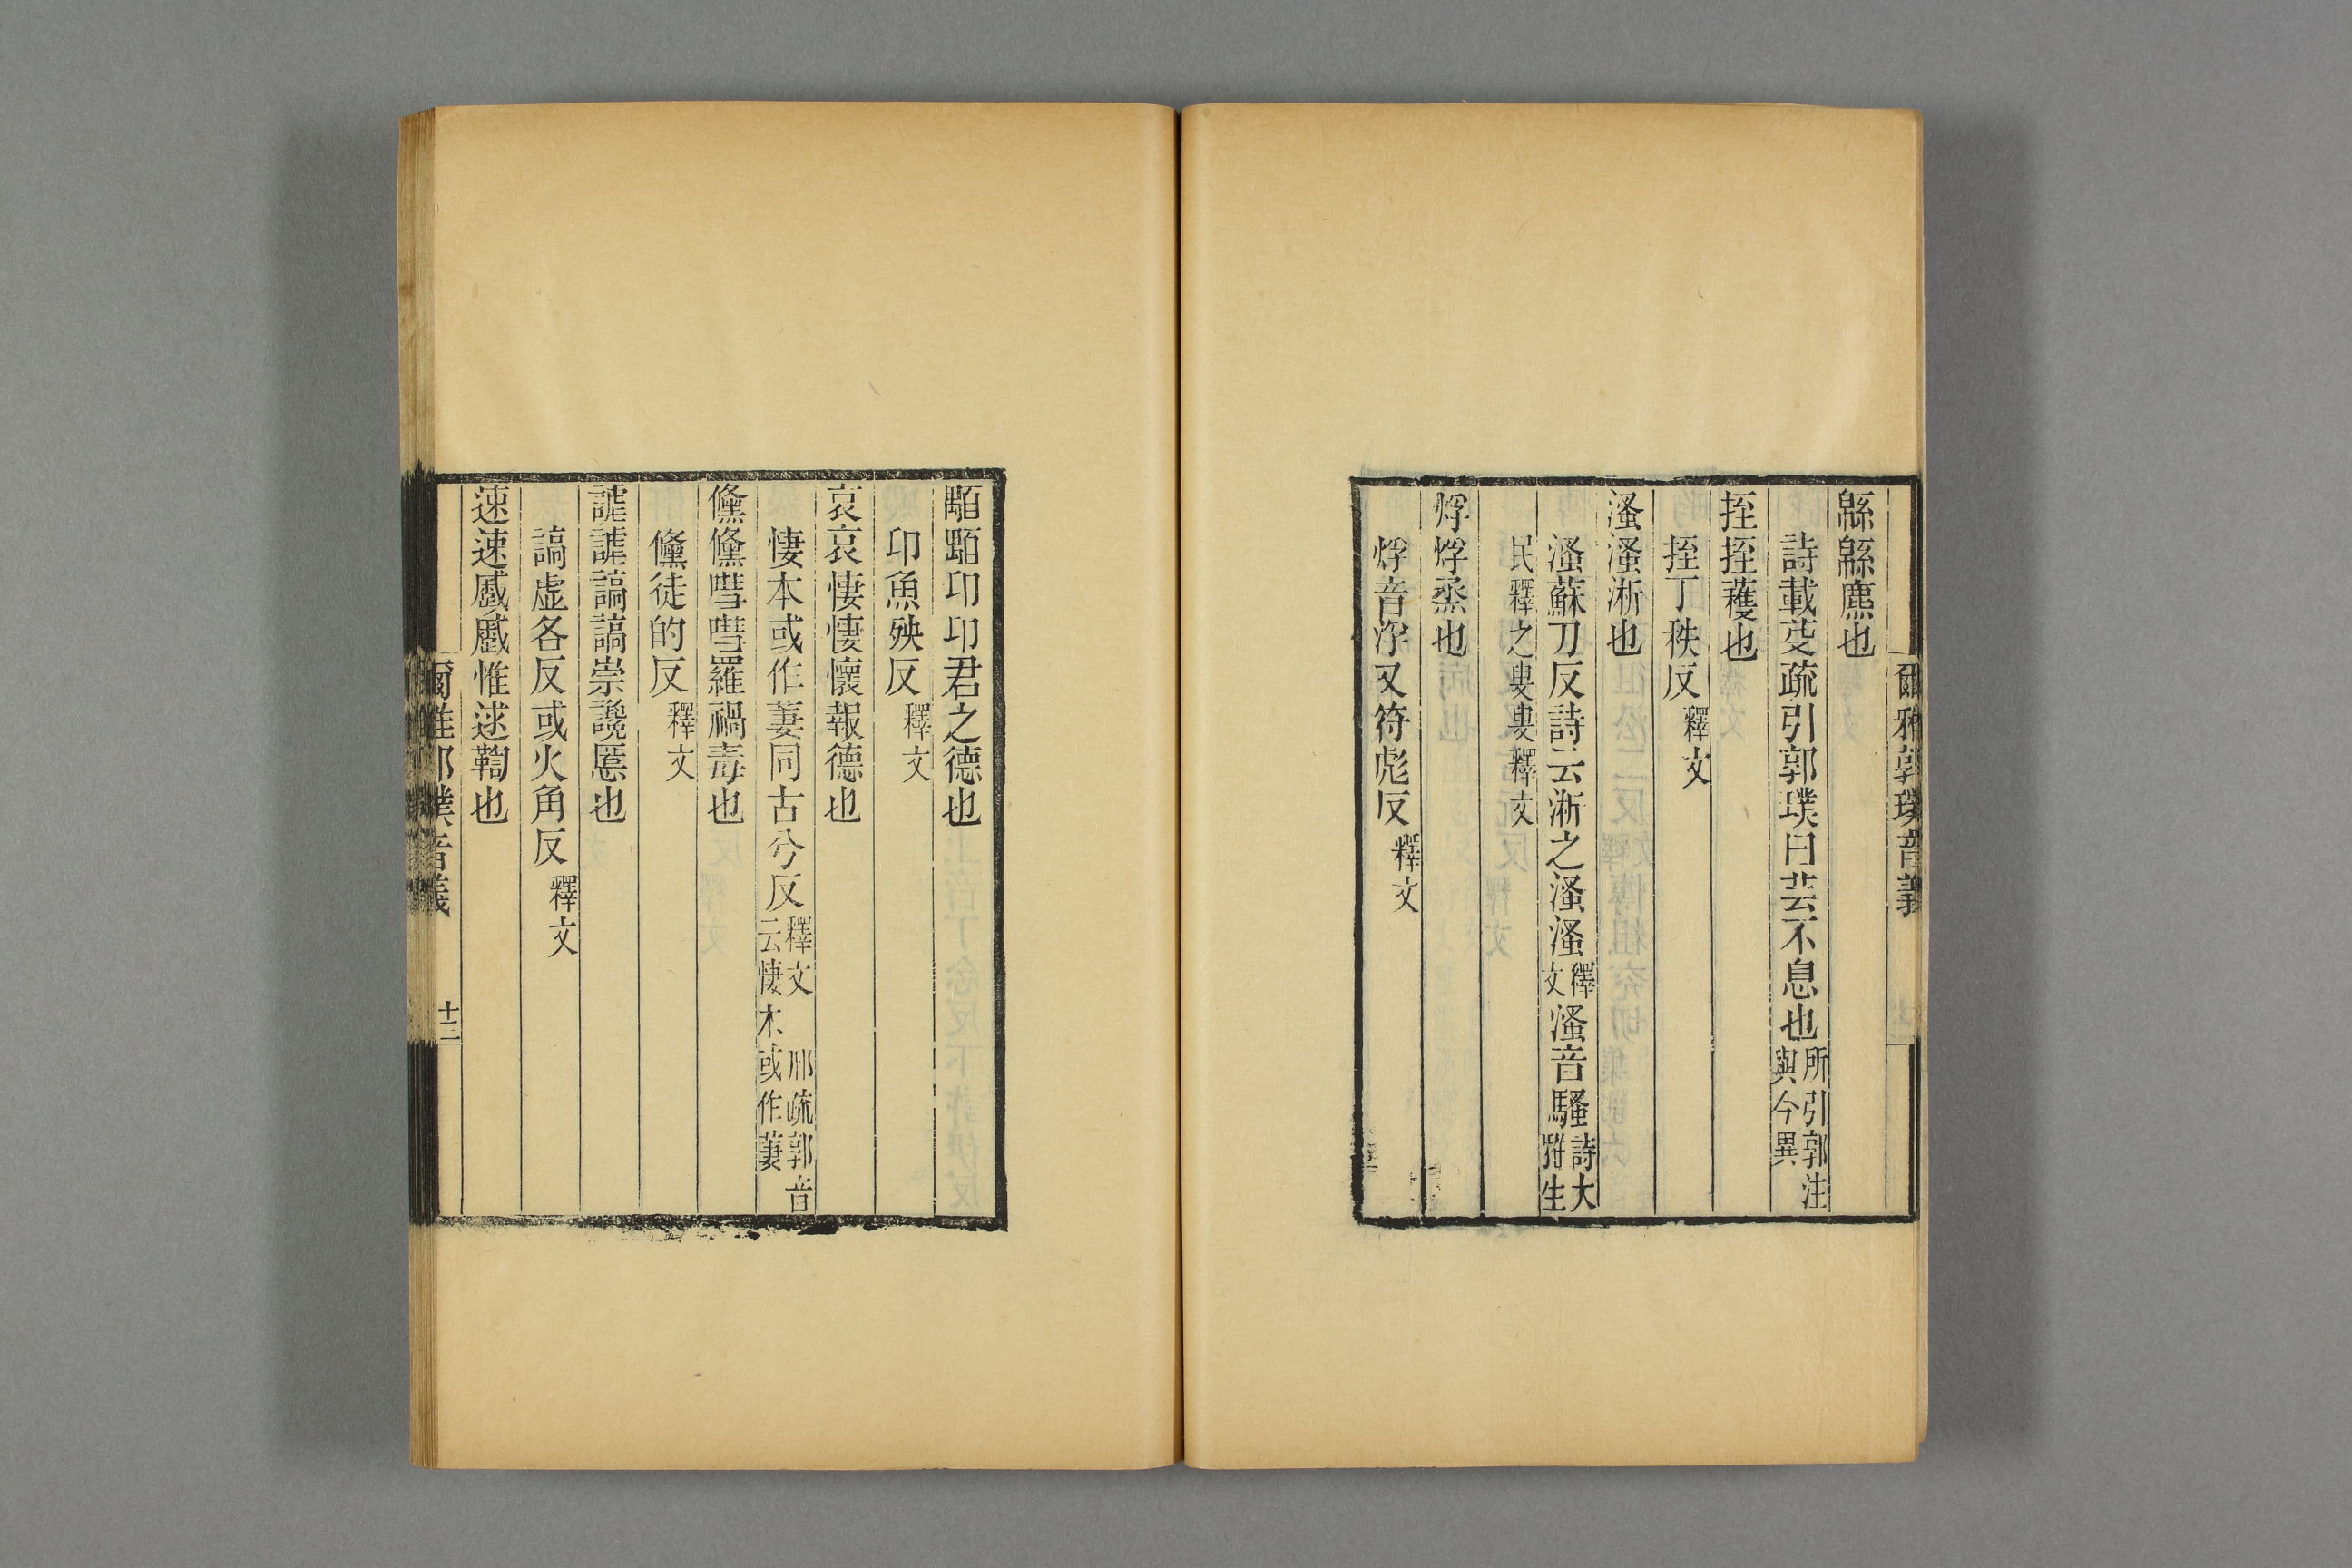 爾雅郭璞音義
緜緜麃也
詩載芟疏引郭璞曰芸不息也所引郭注與今異
挃挃穫也
挃丁秩反釋文
溞溞淅也
溞蘇刀反詩云淅之溞溞釋文溞音騷詩大雅生
民釋之叟叟釋文
烰烰烝也
烰音浮又符彪反釋文
顒顒卬卬君之德也
卬魚殃反釋文
哀哀悽悽懷報德也
悽本或作萋同古兮反釋文 邢疏郭音云悽本或作萋
儵儵嘒嘒羅禍毒也
儵徒的反釋文
謔謔謞謞崇讒慝也
謞虛各反或火角反釋文
速速蹙蹙惟逑鞫也
爾雅郭璞音義 十二